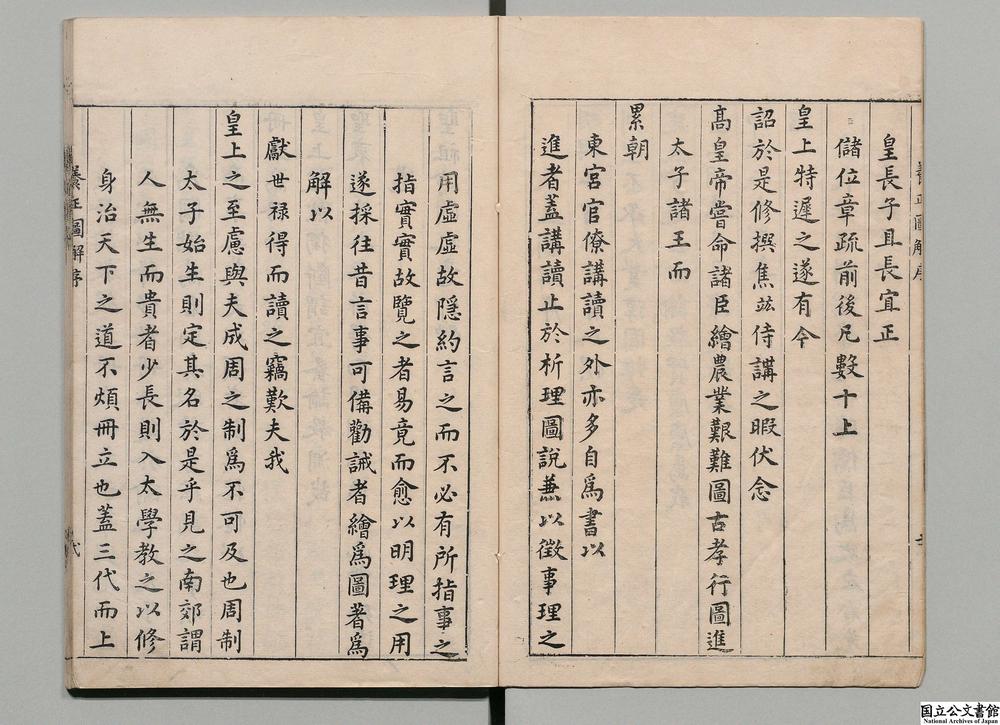 皇長子且長宜正
儲位章疏前後凡數十上
皇上特遲之遂有今
詔於是修撰焦竑侍講之暇伏念
高皇帝嘗命諸臣繪農業艱難圖古孝行圖進
太子諸王而
累朝
東宮官僚講讀之外亦多自為書以
進者蓋講讀止於析理圖說兼以徵事理之
養正圖解序
用虛虛故隱約言之而不必有所指事之
指實實故覽之者易竟而愈以明理之用
遂採往昔言事可備勸誡者繪爲圖著爲
解以
獻世祿得而讀之竊歎夫我
皇上之至慮與夫成周之制爲不可及也周制
太子始生則定其名於是乎見之南郊謂
人無生而貴者少長則入太學教之以修
身治天下之道不煩冊立也蓋三代而上
養正圖解序
国立公文書館
National Archives of Japan